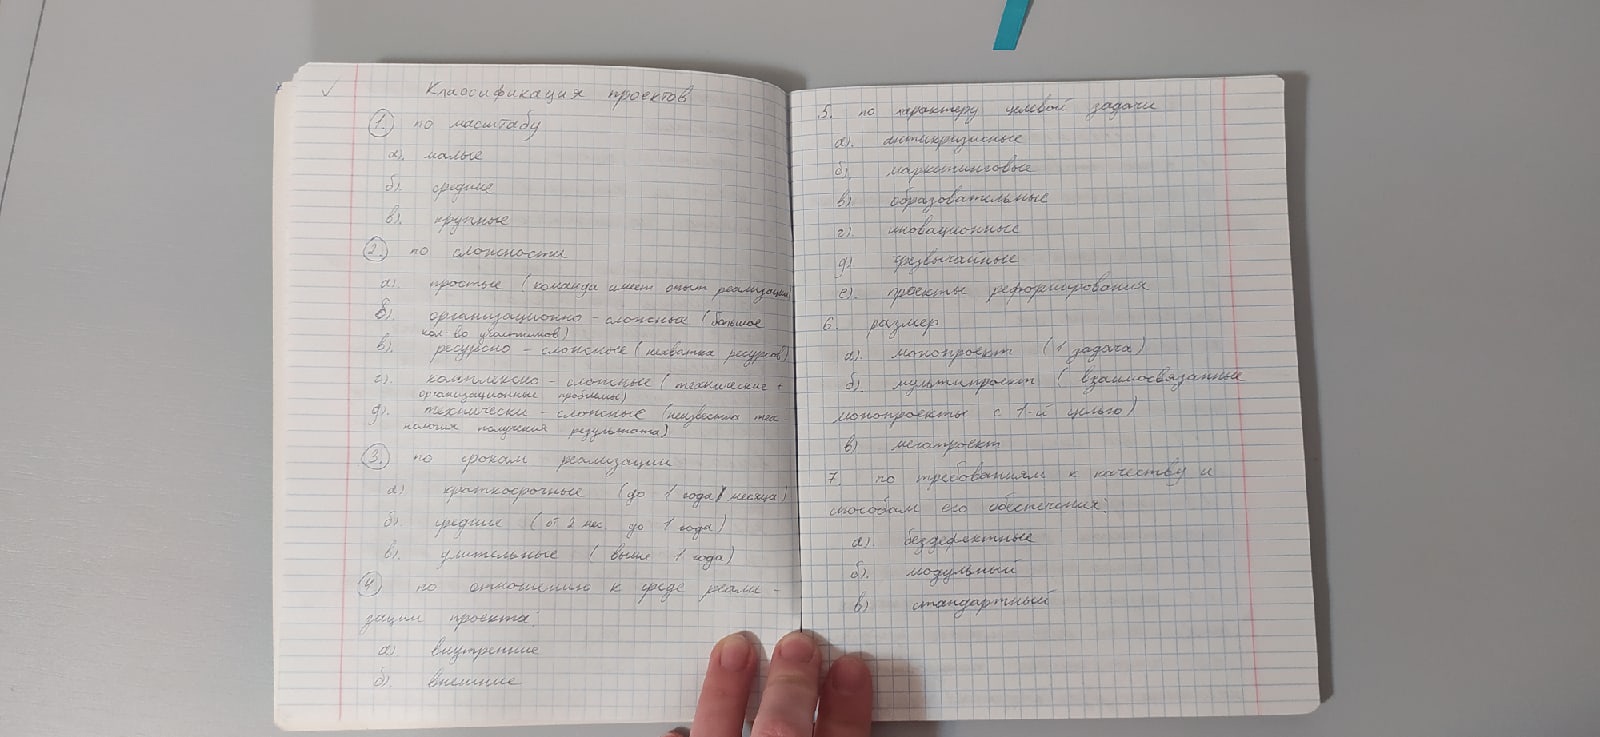 Классификация проектов
1. по масштабу
а). малые
б). средние
в). крупные
2. по сложности
а). простые (команда имеет опыт реализации
б). организационно - сложные (большое
кол во участников)
в). ресурсно - сложные (нехватка ресурсов)
г). комплексно - сложные (технические +
организационные проблемы)
д). технически - сложные (неизвестна тех
нология получения результата)
3. по срокам реализации
а) краткосрочные (до 1 месяца)
б). средние (от 2 мес до 1 года)
в). длительные (выше 1 года)
4) по отношению к среде реали -
зации проекта:
а). внутренние
б). внешние
5. по характеру целевой задачи
а). антикризисные
б). маркетинговые
в). образовательные
г). иновационные
д). чрезвычайные
е). проекты реформирования
6. размер
а). монопроект (1 задача)
б). мультипроект (взаимосвязанные
монопроекты с 1-й целью)
в) мегапроект
7. по требованиям к качеству и
способам его обеспечения:
а). бездефектные
б). модульный
в) стандартный